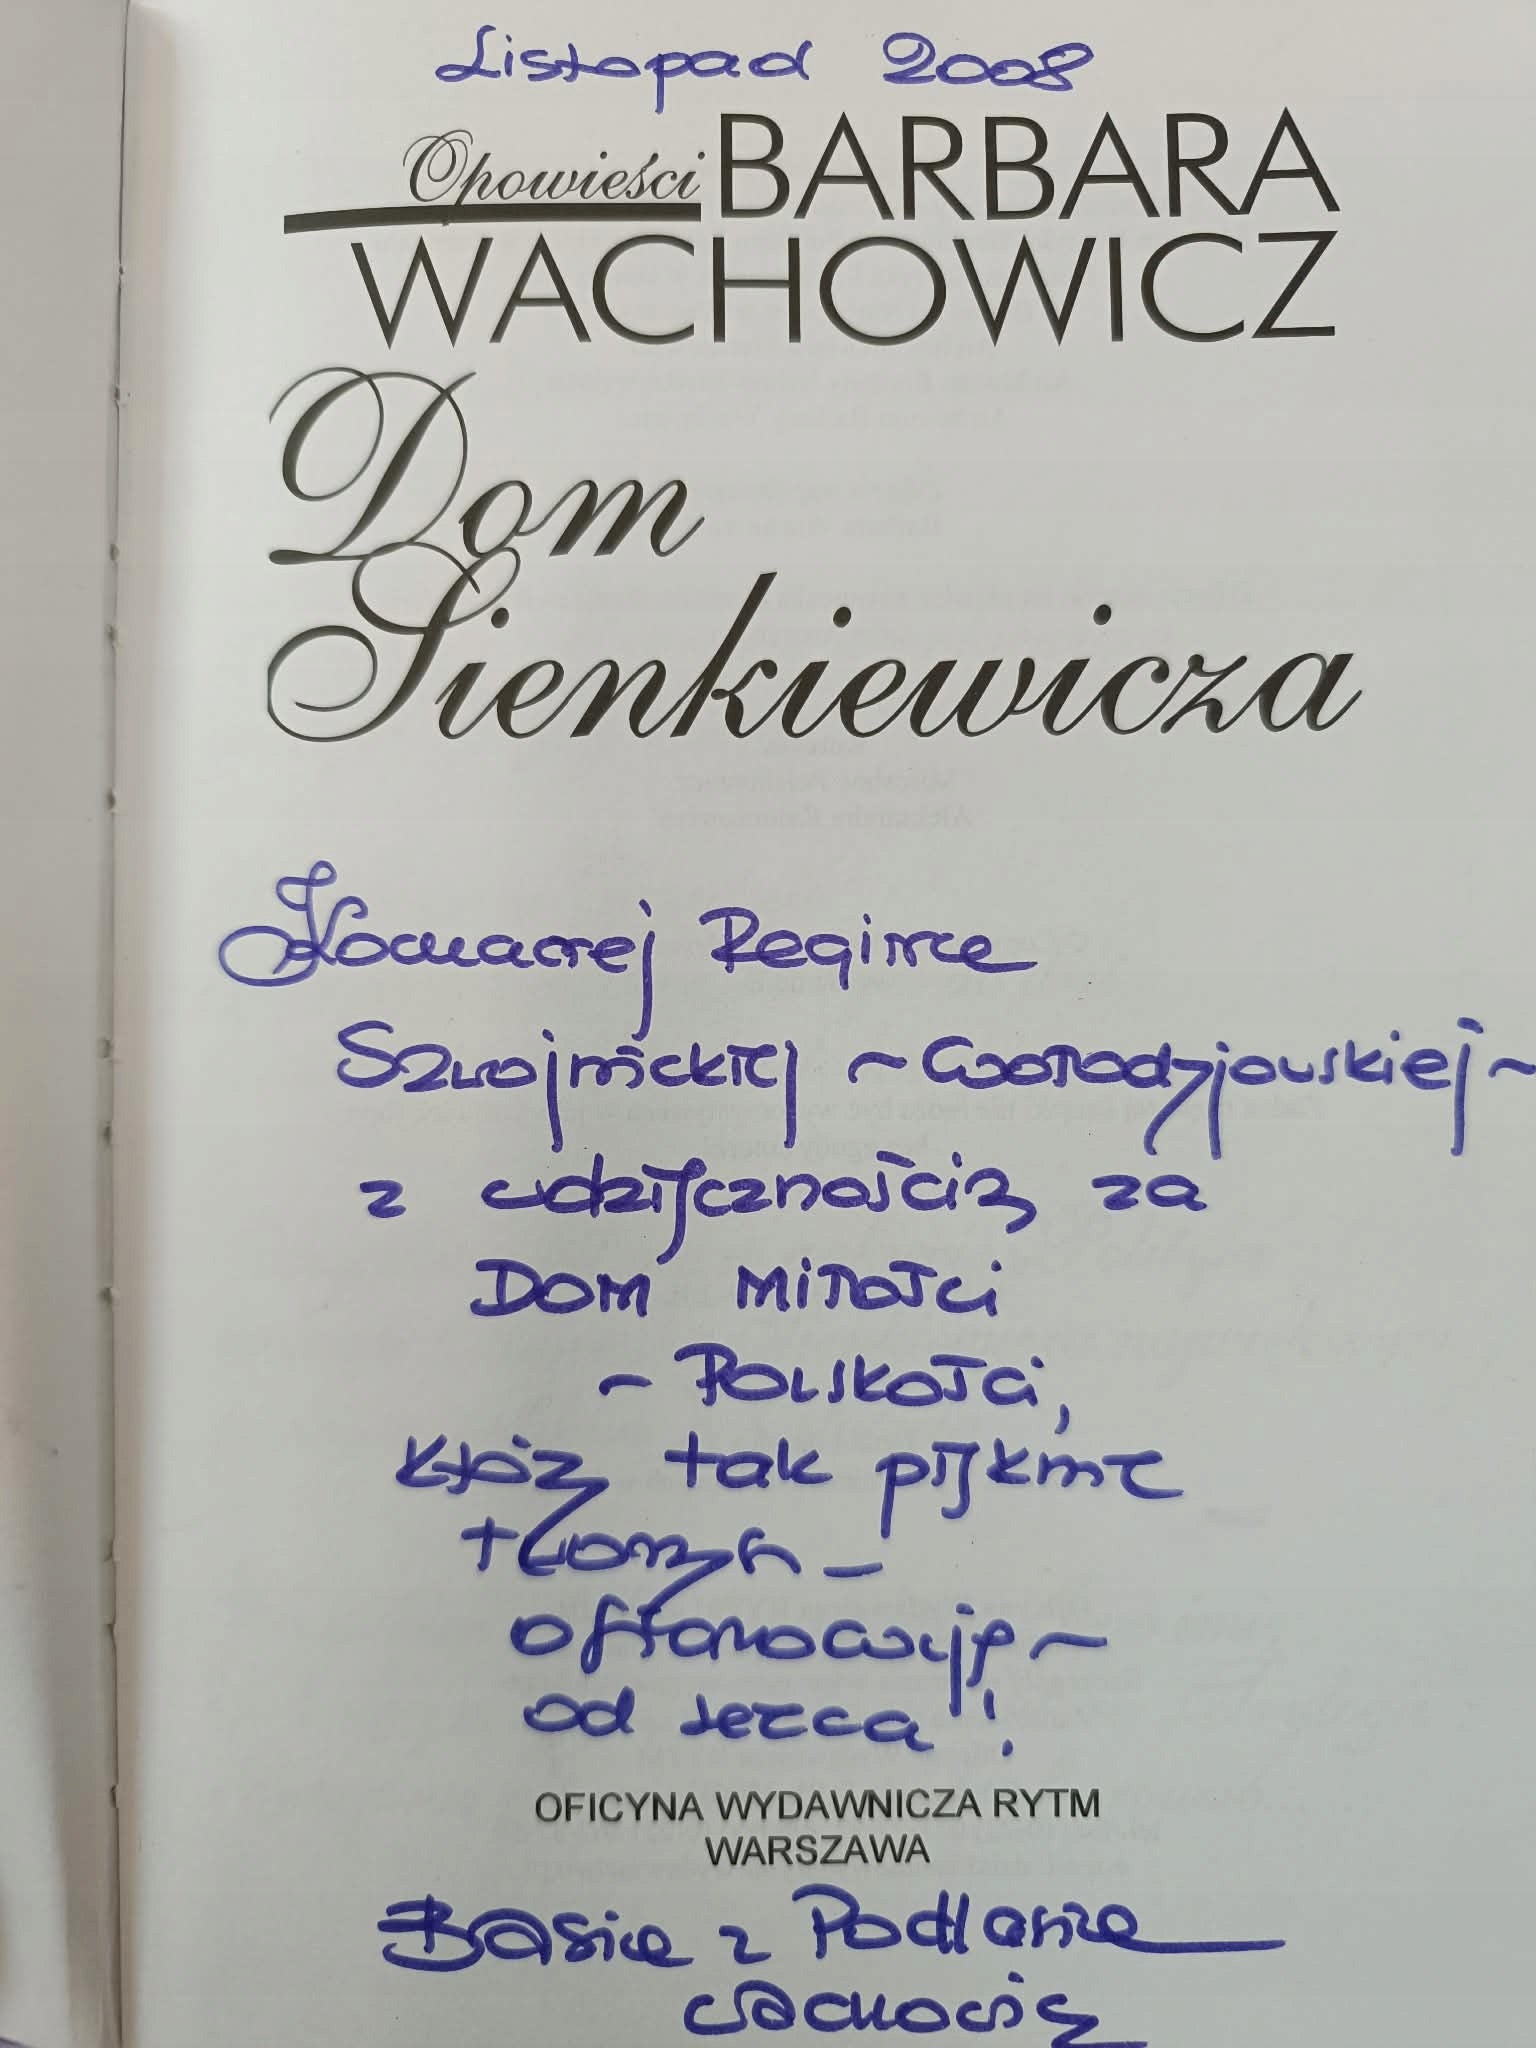 Listopad 2008
Opowieści BARBARA
WACHOWICZ
Dom
Sienkiewicza
Kochanej Regince
z wdzięcznością za
DOM MIŁOŚCI
~ POLSKOŚCI,
którą tak pięknie
tworzą –
ofiarowuję ~
od serca!
OFICYNA WYDAWNICZA RYTM
WARSZAWA
Basia z Podlasia
Wachowicz